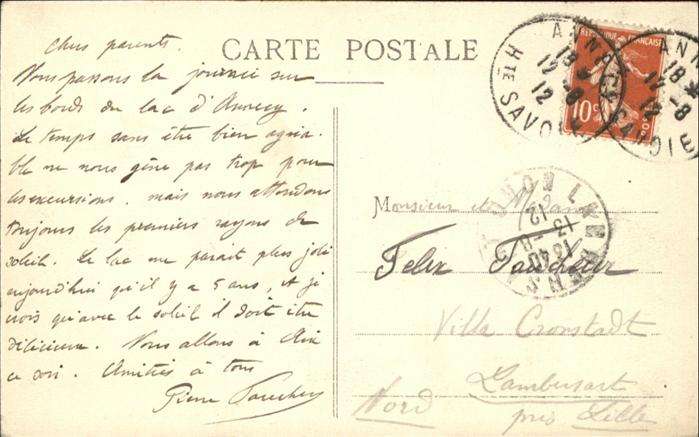 CARTE POSTALE
Chers parents.
Nous passons la journée sur
les bords du lac d'Annecy.
Le temps sans être bien agréa-
ble ne nous gêne pas trop pour
les excursions. mais nous attendons
toujours les premiers rayons de
soleil. Le lac me parait plus joli
aujourd'hui qu'il y a 5 ans, et je
crois qu'avec le soleil il doit être
délicieux. Nous allons à Aix
ce soir. Amitiés à tous
Pierre Faucheur
REPUBLIQUE FRANÇAISE
10
HTE SAVOIE
12 -8
12
Monsieur et Madame
Felix Faucheur
Villa Cronstadt
Lambersart
près Lille
Nord
13 -8
12